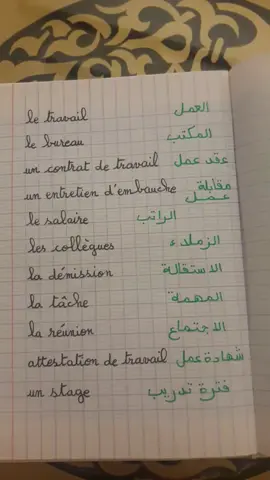 le travail العمل
le bureau المكتب
un contrat de travail عقد عمل
un entretien d'embauche مقابلة عمل
le salaire الراتب
les collègues الزملاء
la démission الاستقالة
la tâche المهمة
la réunion الاجتماع
attestation de travail شهادة عمل
un stage فترة تدريب